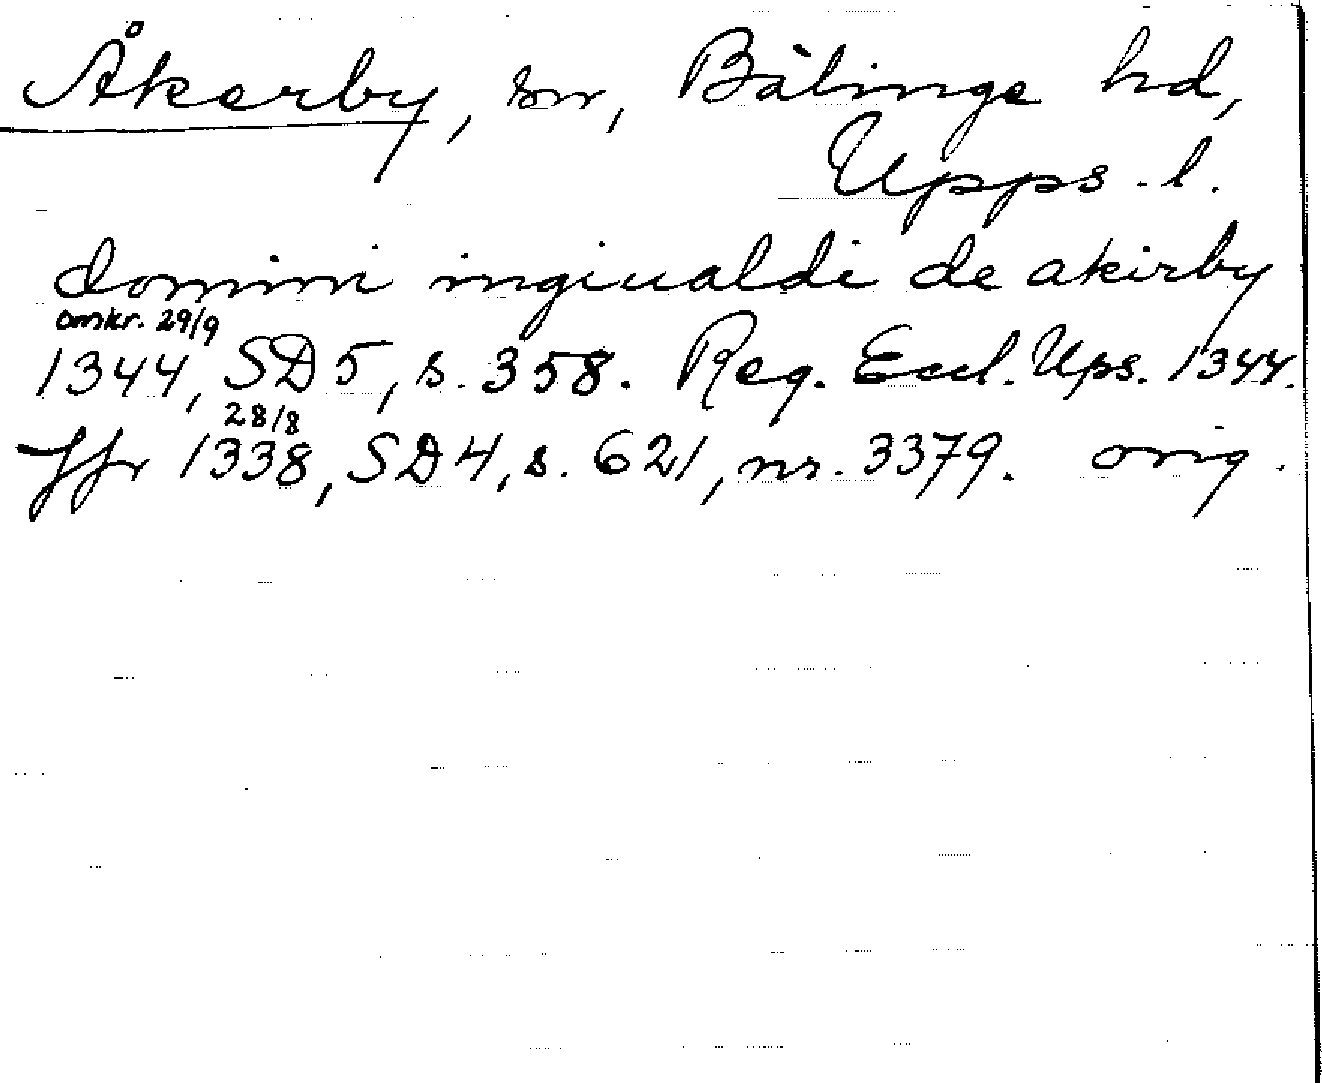 Åkerby, sn, Bälinge hd,
Upps. l.
domini ingiualdi de akirby
omkr. 29/9
1344, SD 5, s. 358. Reg. Eccl. Ups. 1344.
28/8
Jfr 1338, SD 4, s. 621, nr. 3379. orig.